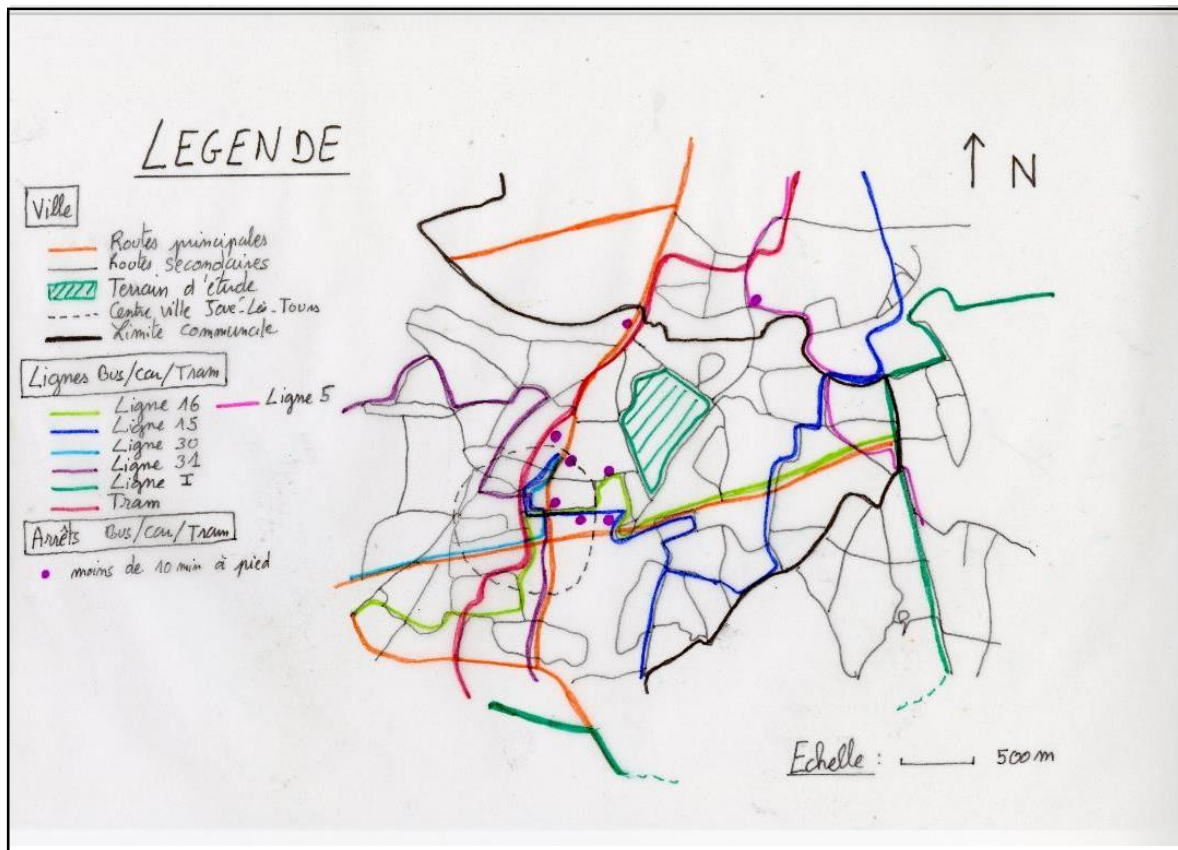 LEGENDE
Ville
Routes principales
Routes secondaires
Terrain d'étude
Centre ville Joué-Lès-Tours
Limite communale
Lignes Bus/Car/Tram
Ligne 16
Ligne 5
Ligne 15
Ligne 30
Ligne 31
Ligne I
Tram
Arrêts Bus/Car/Tram
moins de 10 min à pied
N
Echelle : 500m